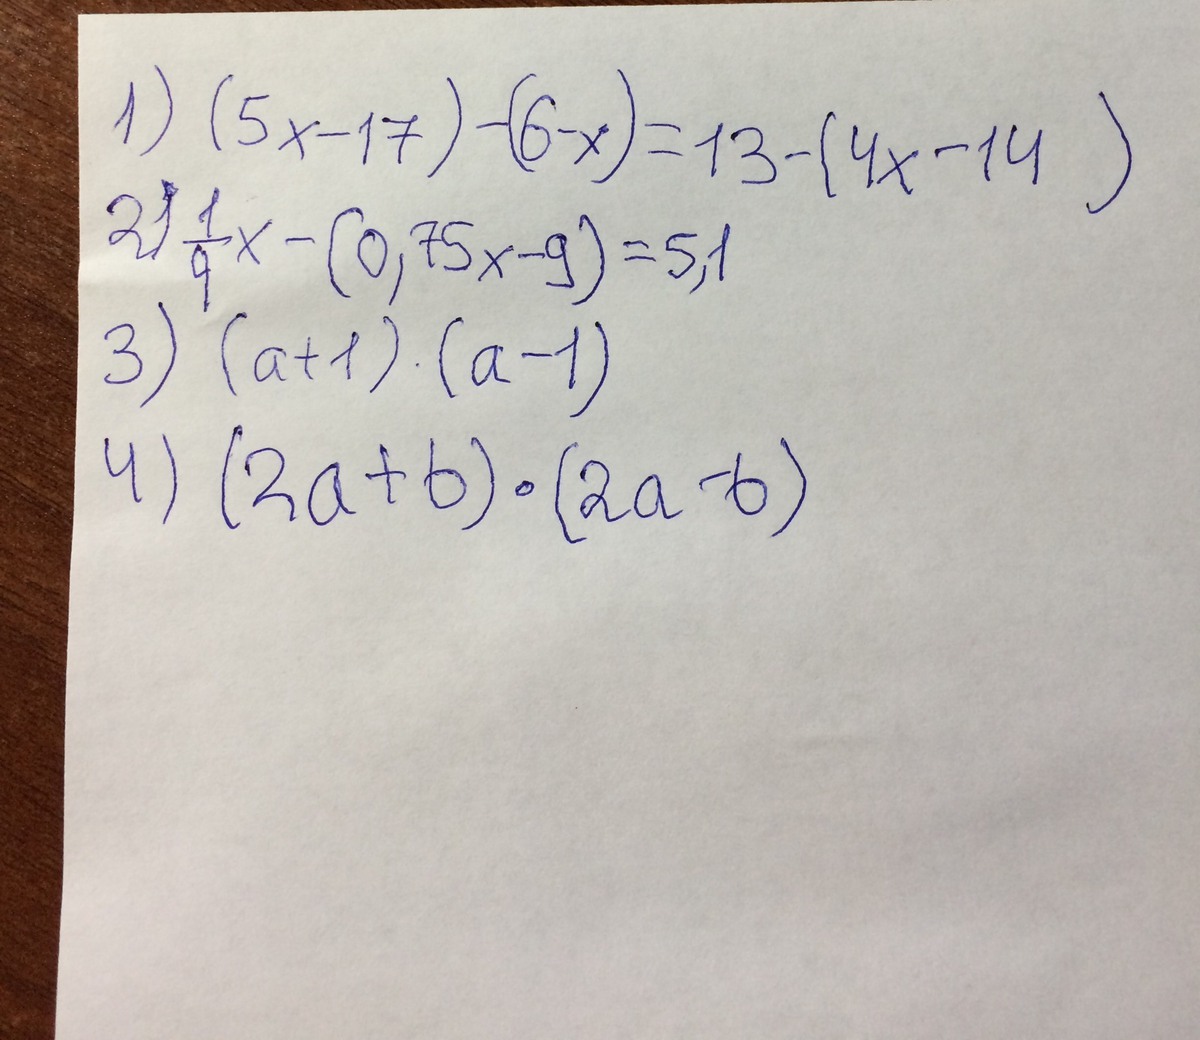 1) (5x-17)-(6-x)=13-(4x-14)
2) 1/9 x-(0,75x-9)=5,1
3) (a+1)·(a-1)
4) (2a+b)·(2a-b)